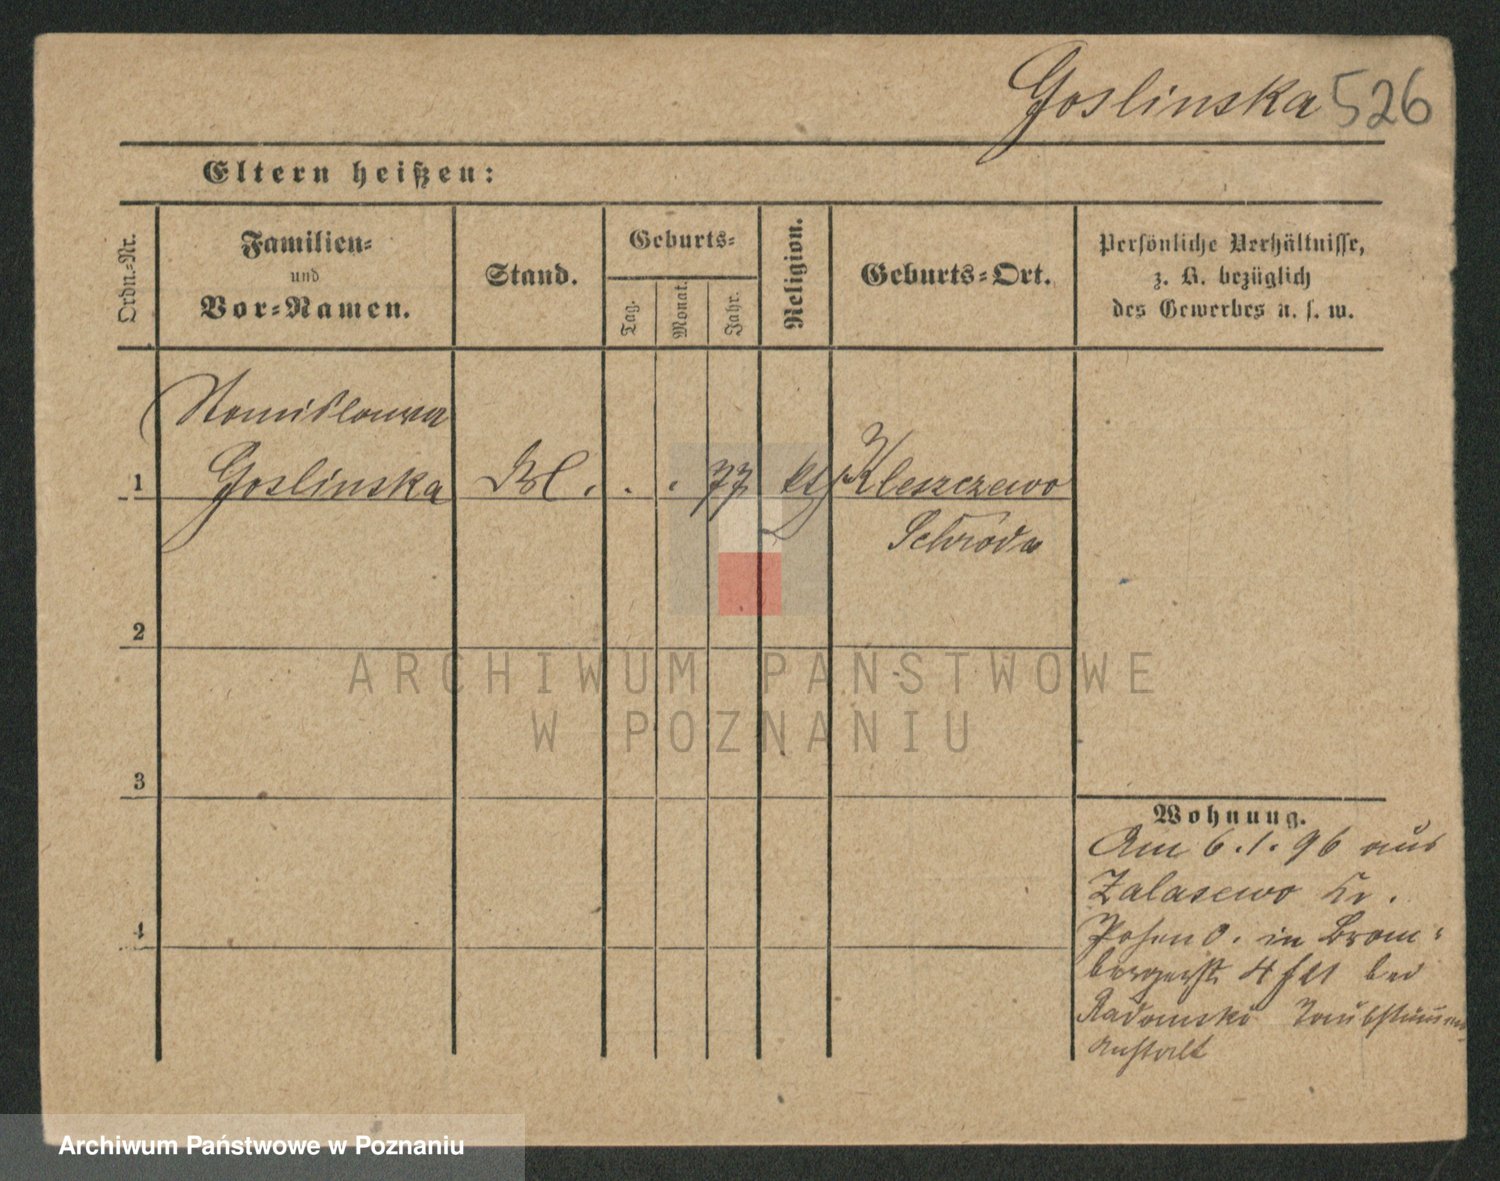 Goslinska 526
Eltern heißen:
Ordn.-Nr.
Familien-
und
Vor-Namen.
Stand.
Geburts-
Tag.
Monat.
Jahr.
Religion.
Geburts-Ort.
Persönliche Verhältnisse,
z. B. bezüglich
des Gewerbes u. s. w.
Stanislawa
1 Goslinska . . 77 kt Kleszczewo
Schroda
2
3
4
Wohnung.
Am 6.1.96 aus
Zalasewo Kr.
Posen O. in Brom-
bergerstr. 4 bei
Radomski Taubstummen
Anstalt
ARCHIWUM PAŃSTWOWE
W POZNANIU
Archiwum Państwowe w Poznaniu